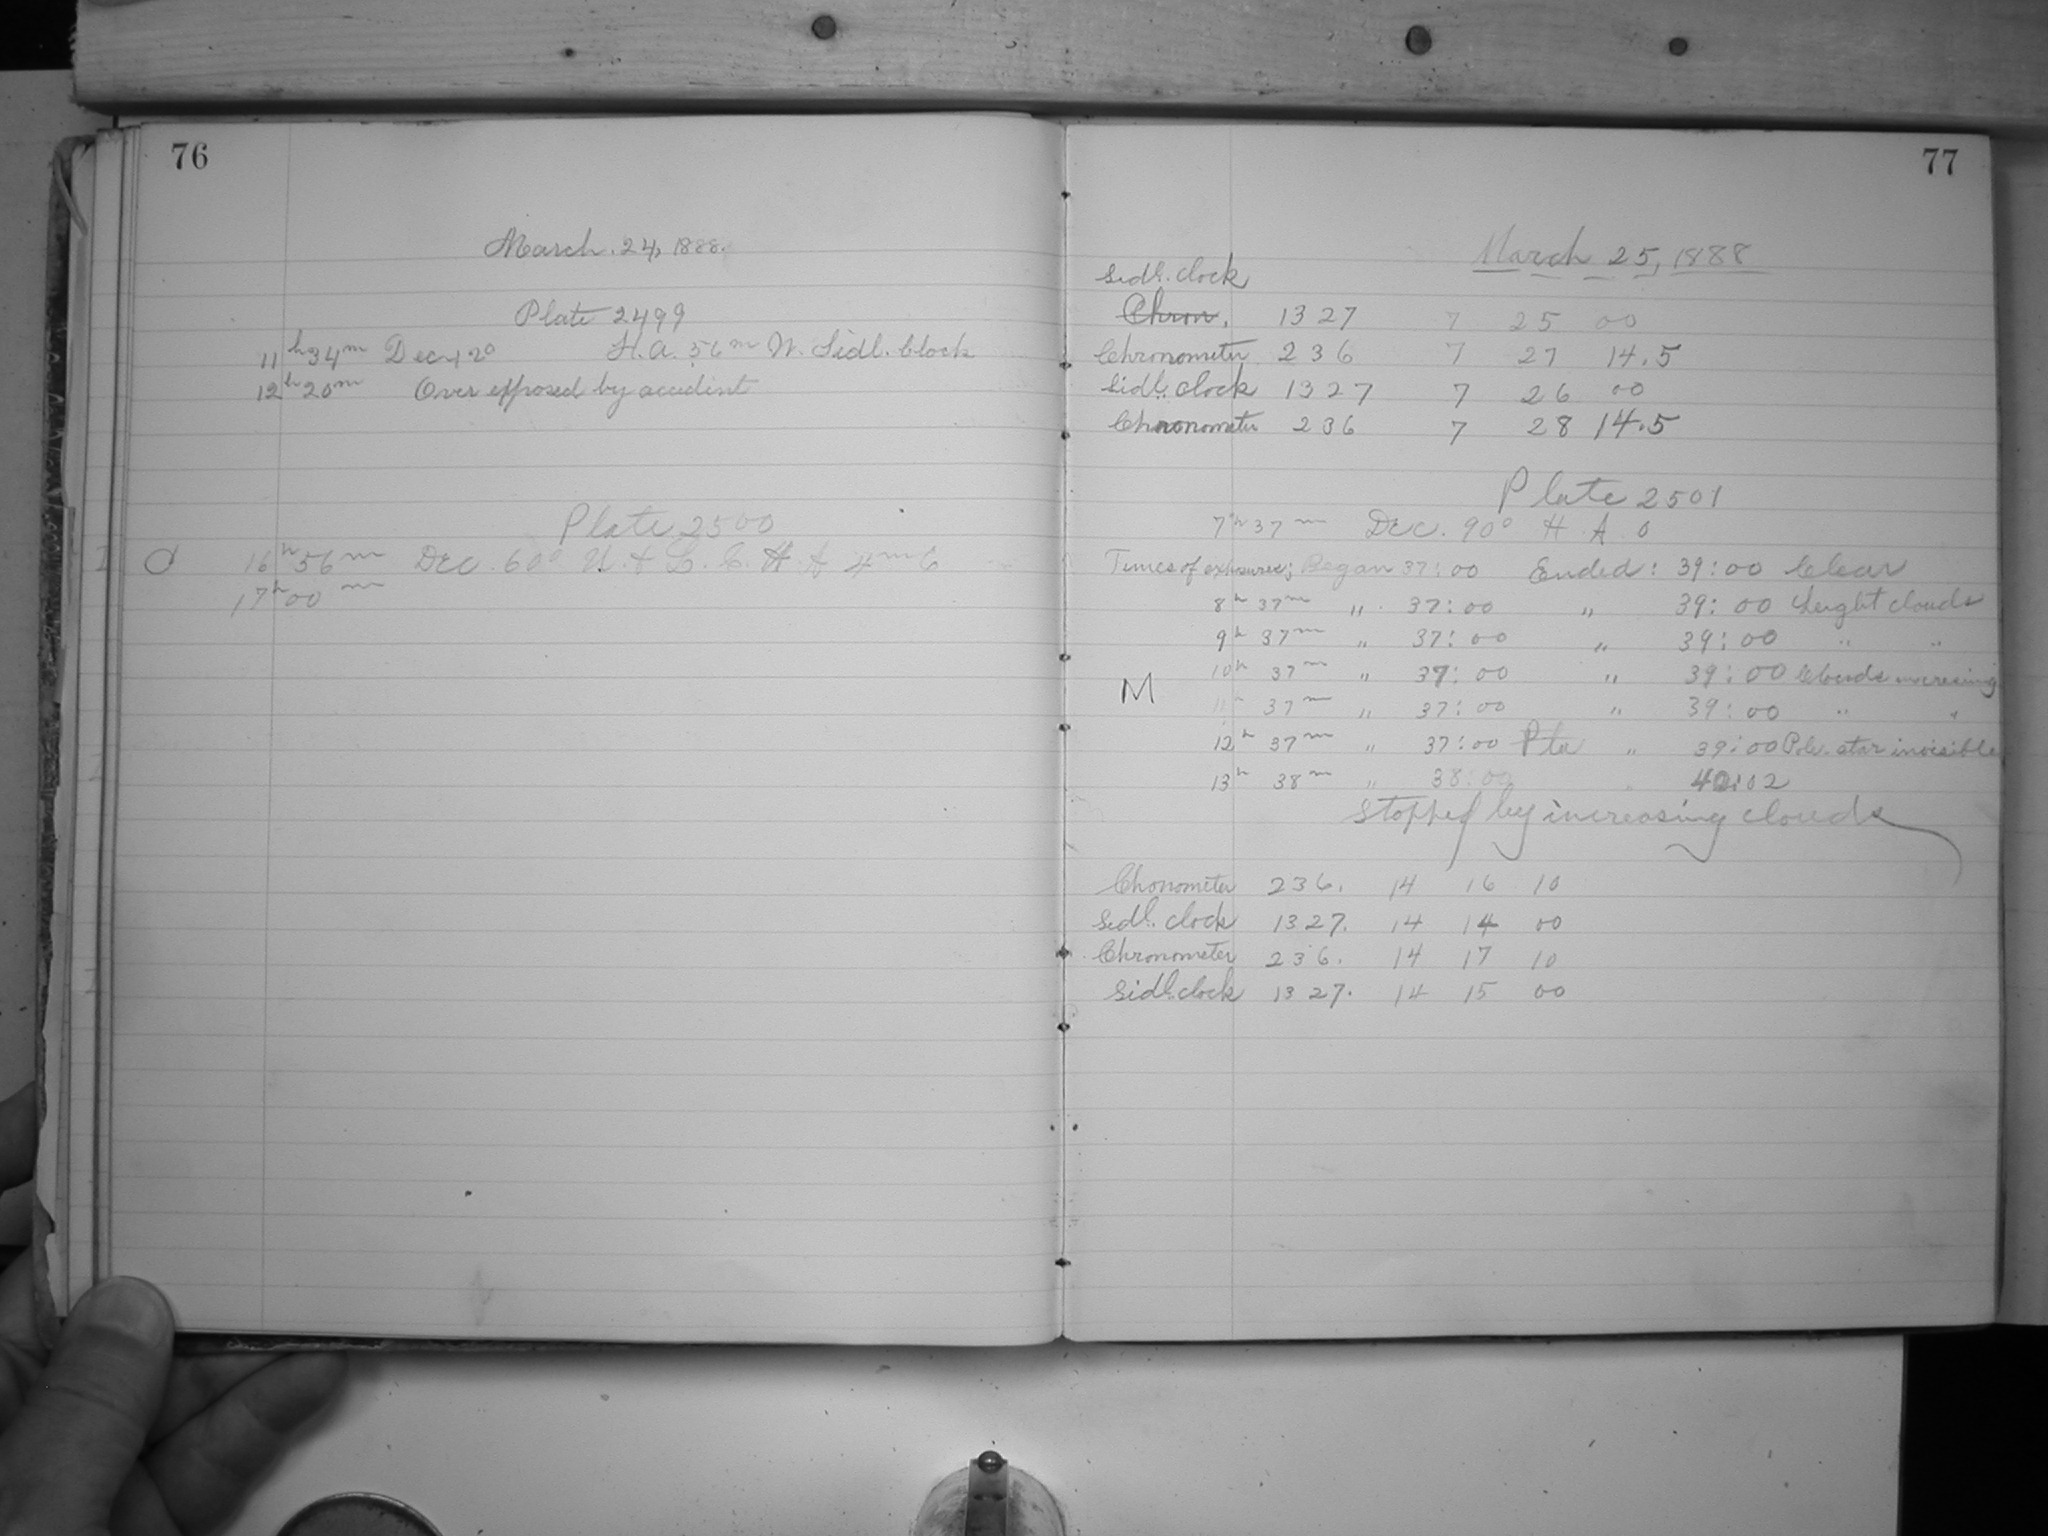 76
March. 24, 1888.
Plate 2499
11h 34m Dec + 2° H. A. 56m W. Sidl. Clock
12h 20m Over exposed by accident
Plate 2500
16h 56m Dec. 60° U. + L. C. H A 4m E
17h 00m
77
March 25, 1888
Sidl. clock
Chron. 1327 7 25 00
Chronometer 236 7 27 14.5
Sidl. clock 1327 7 26 00
Chronometer 236 7 28 14.5
Plate 2501
7h 37m Dec. 90° H. A. 0
Times of exposures; Began 37:00 Ended: 39:00 Clear
8h 37m " 37:00 " 39:00 Light clouds
9h 37m " 37:00 " 39:00 " "
10h 37m " 37:00 " 39:00 Clouds increasing
M
11h 37m " 37:00 " 39:00 " "
12h 37m " 37:00 Pla " 39:00 Pole star invisible
13h 38m " 38:00 " 40:02
Stopped by increasing clouds
Chonometer 236. 14 16 10
Sidl. clock 1327. 14 14 00
Chronometer 236. 14 17 10
Sidl. clock 1327. 14 15 00